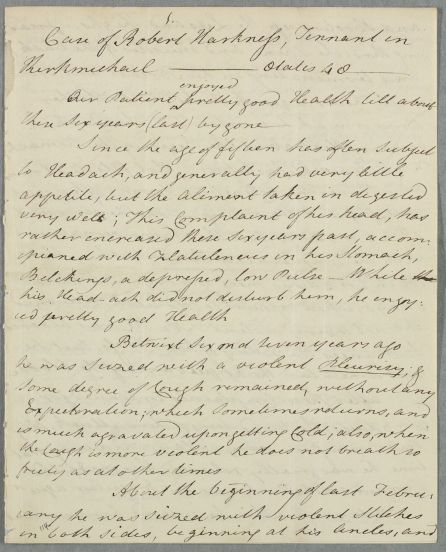 Case of Robert Harkness, Tennant in
Kirkmichail — Ætates 48
Our Patient enjoyed pretty good Health till about
these six years (last) by gone
Since the age of fifteen has often subject
to Headach, and generally had very little
appetite, but the aliment taken in digested
very well; This Complaint of his head, has
rather encreased these six years past, accom-
paened with Flatulences in his Stomach,
Belckings, a depressed, low Pulse – While
his Head-ach did not disturb him, he enjoy-
ed pretty good Health
Betwixt Six and seven years ago
he was seized with a violent Pleuresy; &
some degree of Cough remained, without any
Expectoration; which sometimes returns, and
is much agravated upon getting Cold; also, when
the Cough is more violent he does not breath so
freely as at other times
About the beginning of last Febru-
ary he was seized with violent Stitches
in both sides, beginning at his Ancles, and